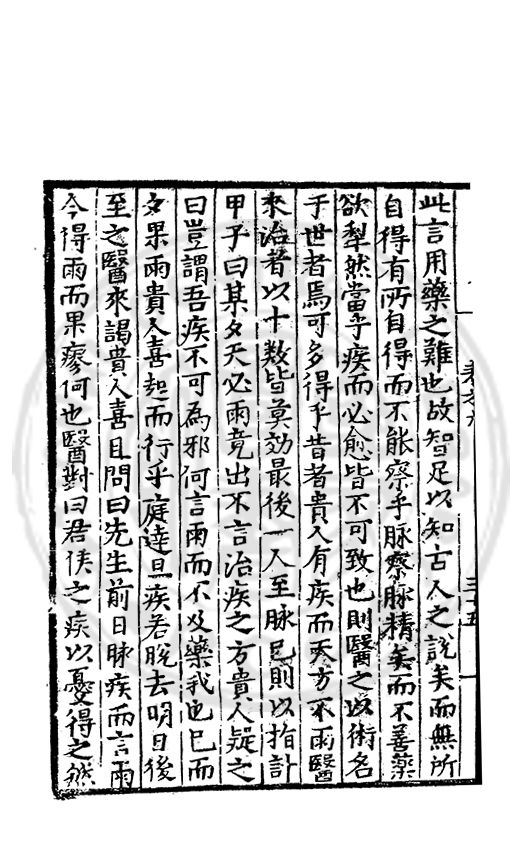 此言用藥之難也故智足以知古人之說矣而無所
自得有所自得而不能察乎脉察脉精矣而不善藥
欲犁然當乎疾而必愈皆不可致也則醫之以術名
于世者焉可多得乎昔者貴人有疾而天方不雨醫
來治者以十數皆莫効最後一人至脉已則以指計
甲子曰某夕天必雨竟出不言治疾之方貴人疑之
曰豈謂吾疾不可為邪何言雨而不及藥我也已而
夕果雨貴人喜起而行乎庭達旦疾若脫去明日後
至之醫來謁貴人喜且問曰先生前日脉疾而言雨
今得雨而果瘳何也醫對曰君侯之疾以憂得之然